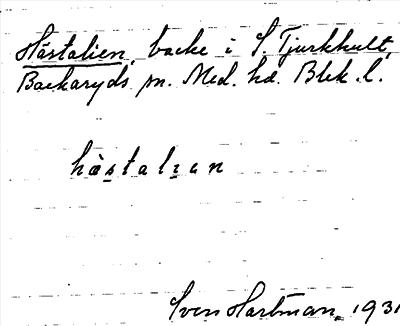 Hästalien, backe i S. Tjurkhult,
Backaryds sn. Med. hd. Blek. l.
hæstalıan
Sven Hartman, 1931